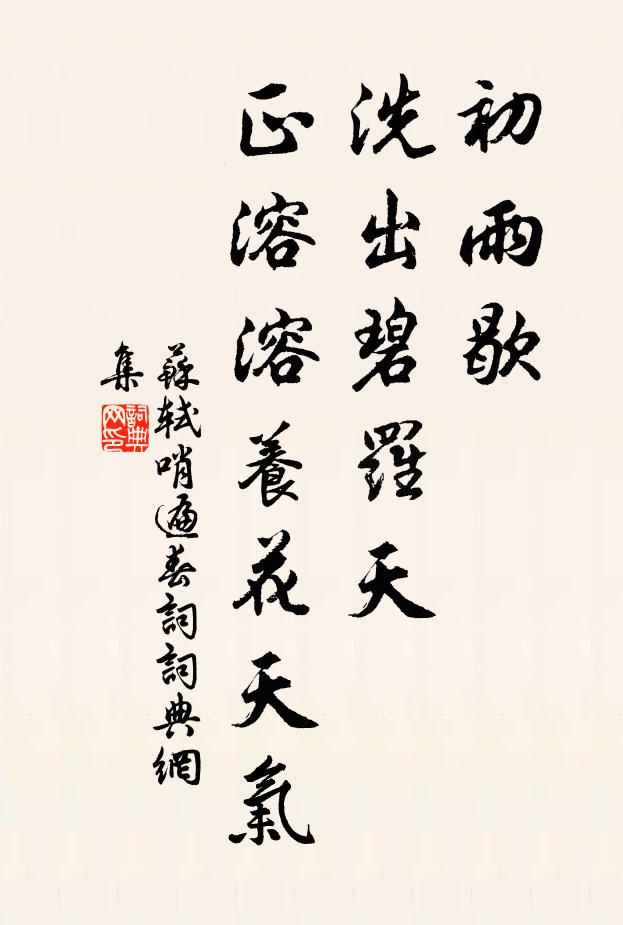 初雨歇
洗出碧羅天
正溶溶養花天氣
蘇軾哨遍春詞詞典網
集
詞典
网印